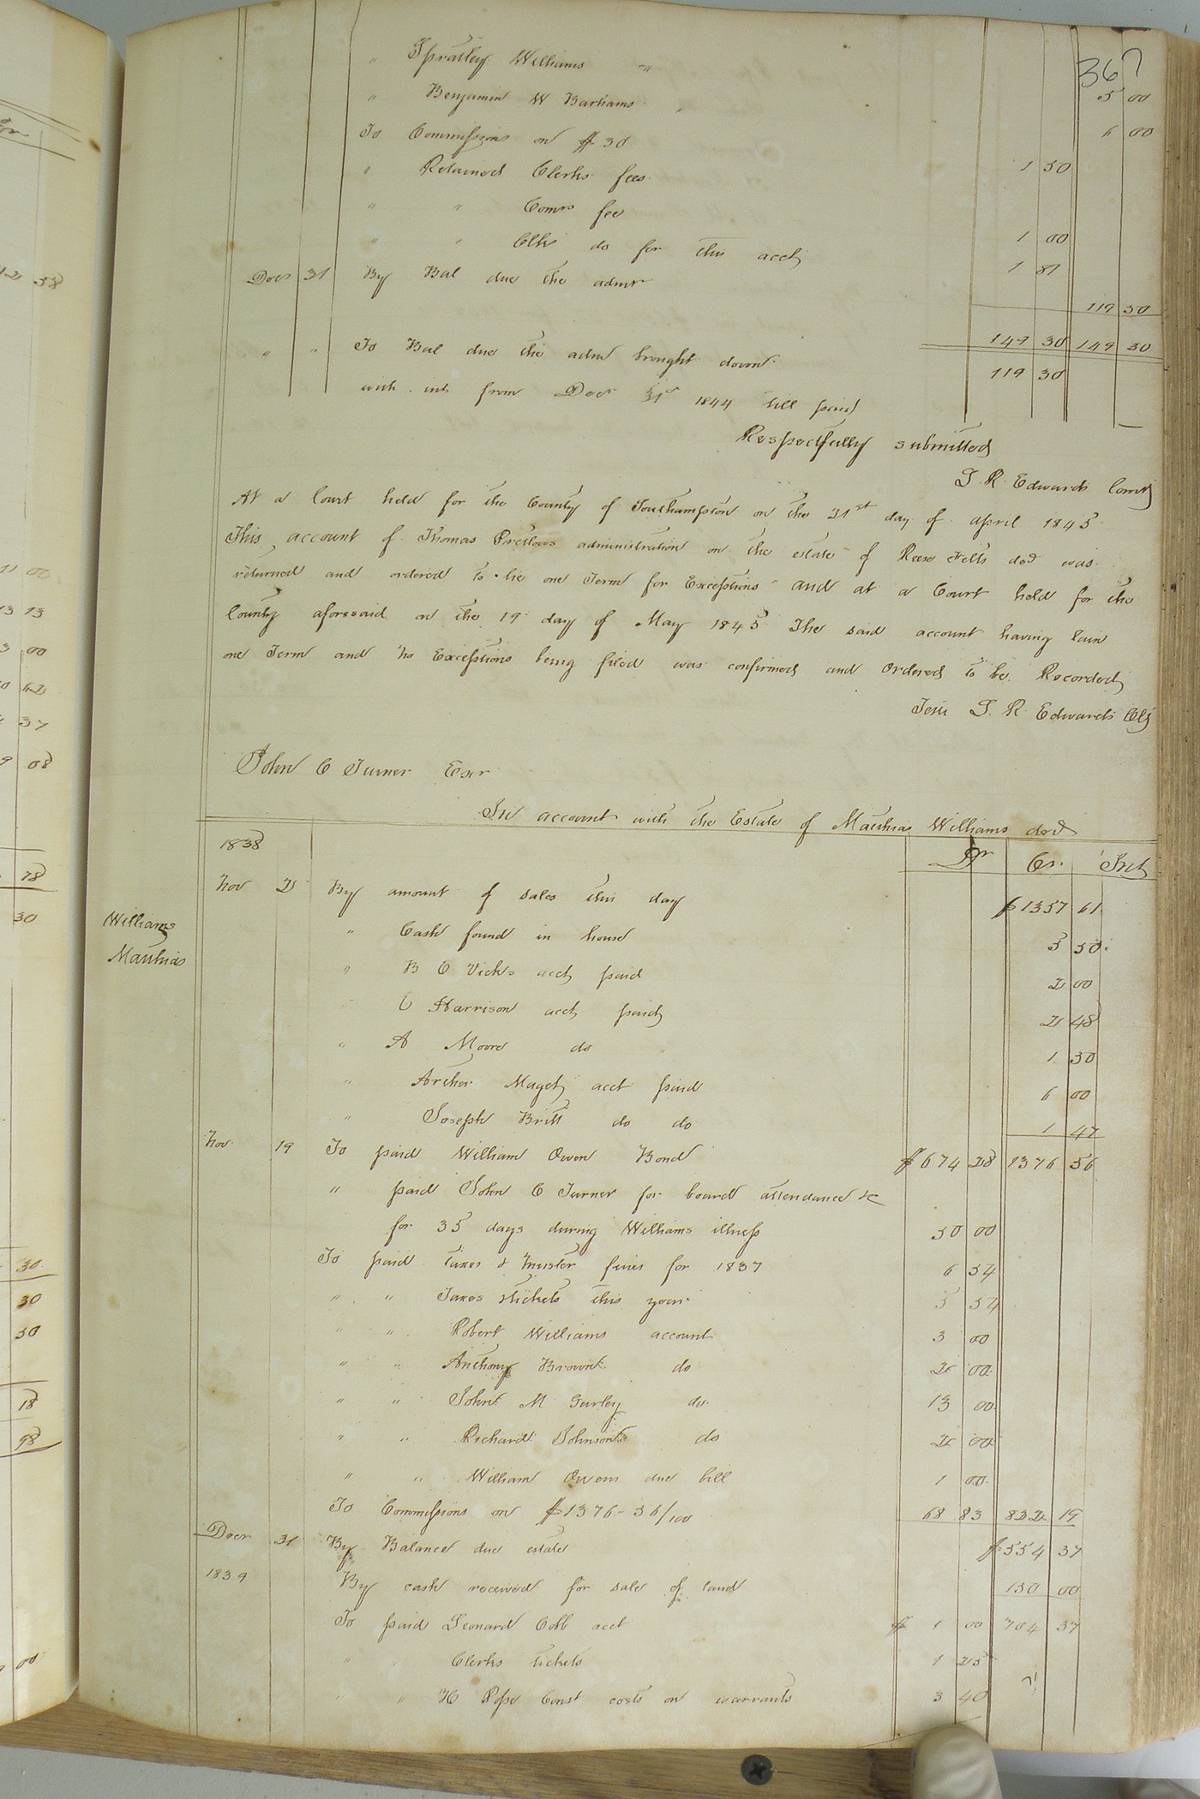 367
" Spratley Williams " 5 00
" Benjamin W Barhams " 6 00
To Commissions on $30 1 50
" Retained Clerks fees
" " Comrs fee 1 00
" " Clks do for this acct 1 81
Decr 31 By Bal due the admr 119 30
149 30 149 30
" " To Bal due the admr brought down 119 30
with int from Decr 31st 1844 till paid
Respectfully submitted
L R Edwards Comr
At a Court held for the County of Southampton on the 21st day of april 1845
This account of Thomas Pretlows administration on the estate of Reese Felts decd was
returned and ordered to lie one Term for Exceptions and at a Court held for the
County aforesaid on the 19 day of May 1845 The said account having lain
one Term and no Exceptions being filed was confirmed and Ordered to be Recorded
Teste L. R. Edwards Clk
John C Turner Exor
In account with the Estate of Matthias Williams decd
1838 Dr Cr. Int
Williams
Matthias
Nov 25 By amount of sales this day $1357 61
" Cash found in house 5 50
" B C Vicks acct paid 2 00
" C Harrison acct paid 2 48
" A Moore do 1 50
" Archer Magett acct paid 6 00
" Joseph Britt do do 1 47
Nov 19 To paid William Owen Bond $674 28 1376 56
" paid John C Turner for board attendance &c
for 35 days during Williams illness 50 00
To paid taxes & muster fines for 1837 6 54
" " Taxes & tickets this year 5 54
" " Robert Williams account 3 00
" " Anthony Browns do 2 00
" " John M Gurley do 13 00
" " Richard Johnsons do 2 00
" " William Owens due bill 1 00
To Commissions on $1376-56/100 68 83 822 19
Decr 31 By Balance due estate $554 37
1839 By cash received for sale of land 150 00
To paid Leonard Cobb acct $ 1 00 704 37
" " Clerks tickets 1 25
" " Const costs on warrants 3 40